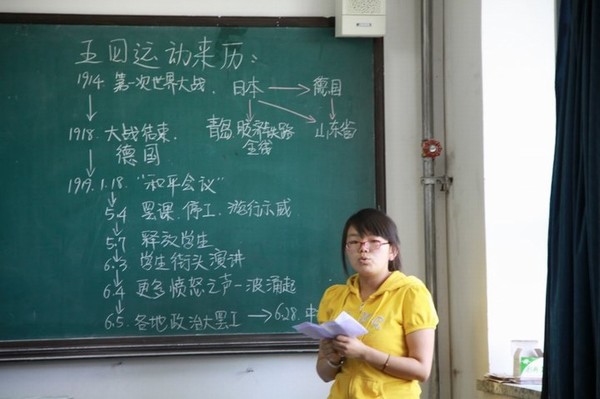 五四运动来历:
1914. 第一次世界大战. 日本 → 德国
1918. 大战结束. 青岛 胶济铁路 山东省
德国 全线
1919.1.18. "和平会议"
5.4 罢课.停工.游行示威
5.7 释放学生
6.3 学生街头演讲
6.4 更多愤怒之声一波涌起
6.5. 各地政治大罢工 → 6.28. 中